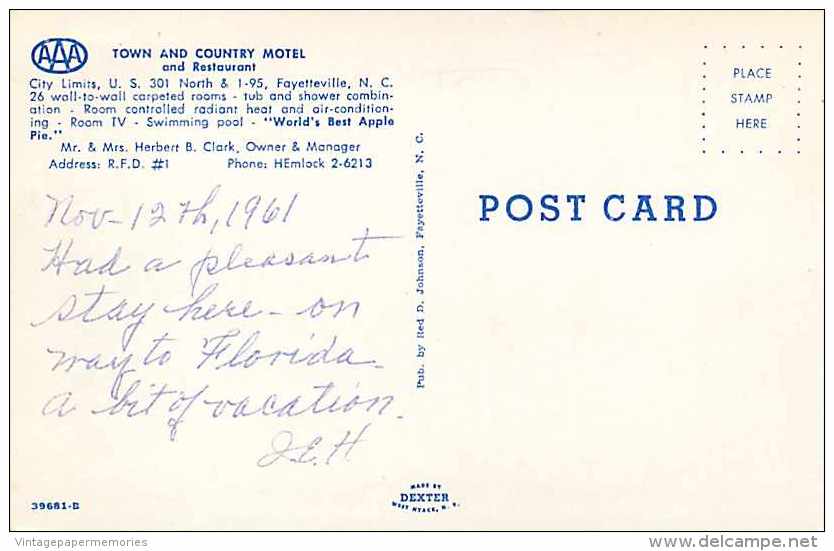 AAA
TOWN AND COUNTRY MOTEL
and Restaurant
City Limits, U. S. 301 North & 1-95, Fayetteville, N. C.
26 wall-to-wall carpeted rooms - tub and shower combin-
ation - Room controlled radiant heat and air-condition-
ing - Room TV - Swimming pool - "World's Best Apple
Pie."
Mr. & Mrs. Herbert B. Clark, Owner & Manager
Address: R.F.D. #1 Phone: HEmlock 2-6213
Nov-12th, 1961
Had a pleasant
stay here - on
way to Florida -
a bit of vacation.
J.E.H
39681-B
Pub. by Red D. Johnson, Fayetteville, N. C.
MADE BY
DEXTER
WEST NYACK, N. Y.
PLACE
STAMP
HERE
POST CARD
Vintagepapermemories
delcampe.net